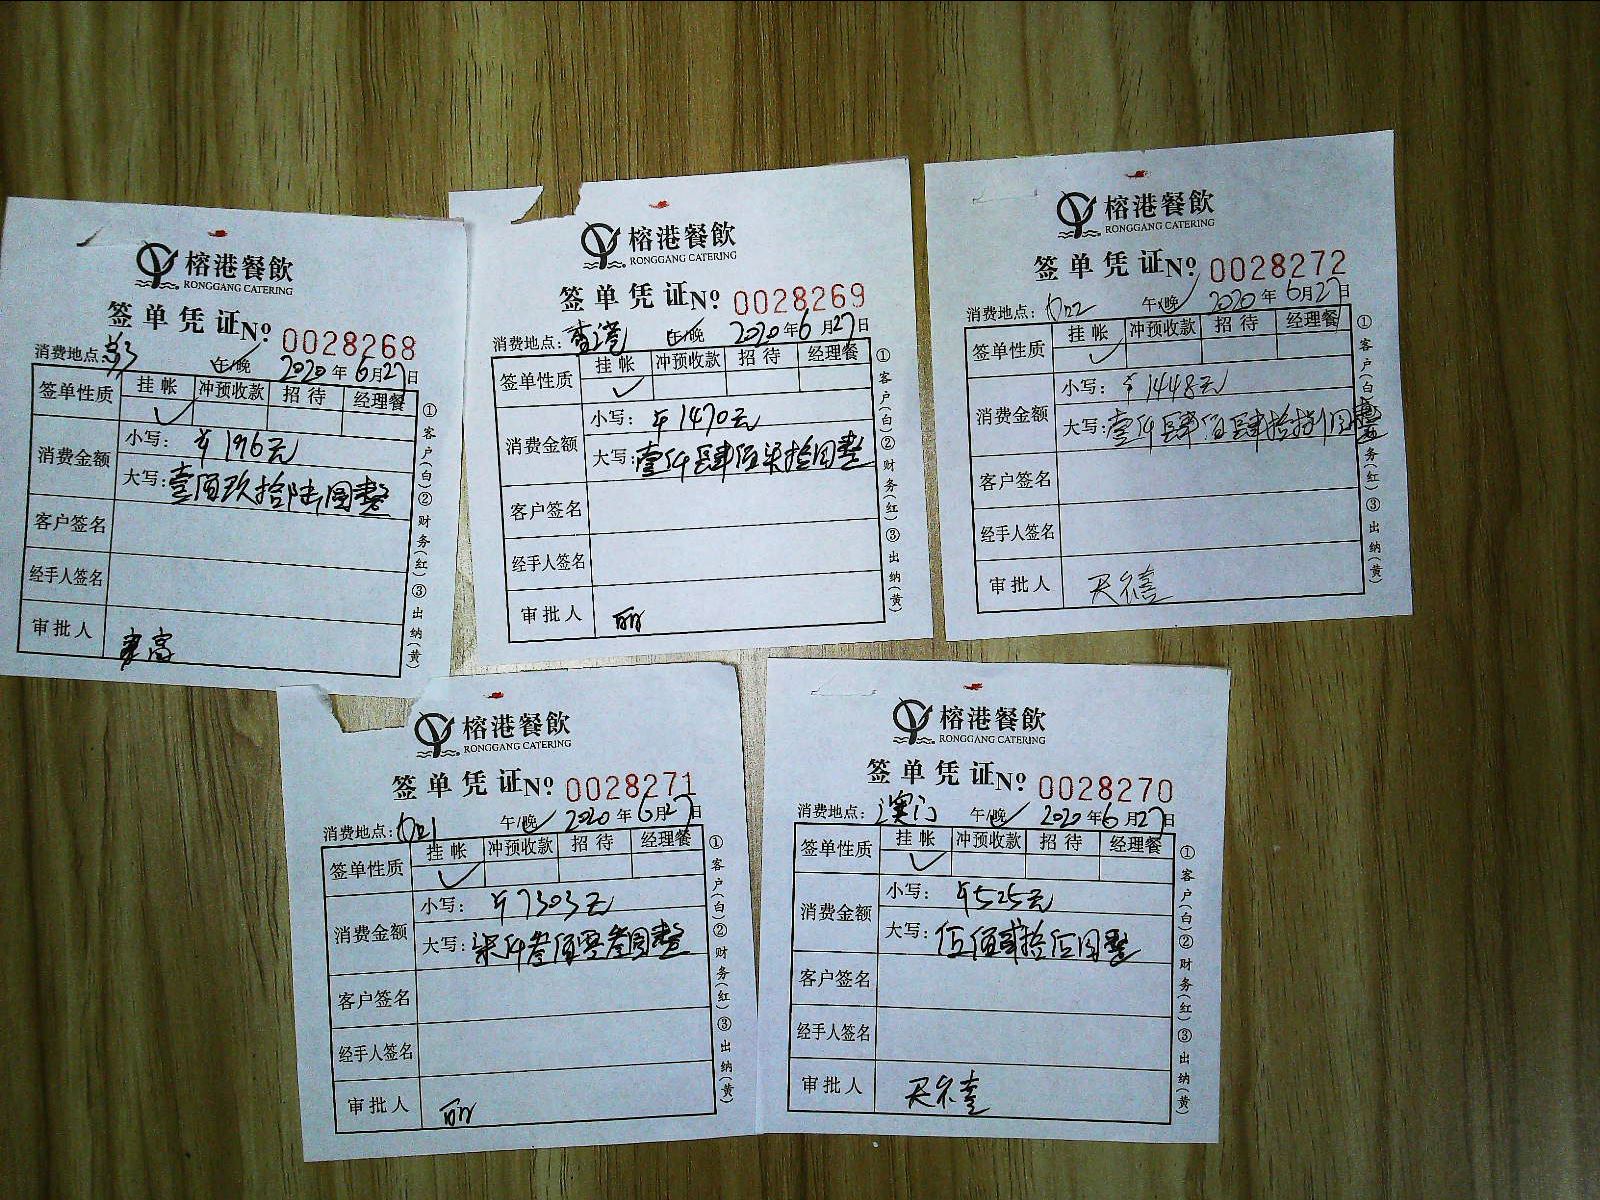 榕港餐飲
RONGGANG CATERING
签单凭证 Nº 0028268
消费地点: 午/晚 2020年6月27日
签单性质 挂帐 冲预收款 招待 经理餐
✓
消费金额 小写: ¥196元
大写: 壹佰玖拾陆圆整
客户签名
经手人签名
审批人
①客户(白)②财务(红)③出纳(黄)
榕港餐飲
RONGGANG CATERING
签单凭证 Nº 0028269
消费地点: 香港 午/晚 2020年6月27日
签单性质 挂帐 冲预收款 招待 经理餐
✓
消费金额 小写: ¥1470元
大写: 壹仟肆佰柒拾圆整
客户签名
经手人签名
审批人 丽
①客户(白)②财务(红)③出纳(黄)
榕港餐飲
RONGGANG CATERING
签单凭证 Nº 0028272
消费地点: 午/晚 2020年6月27日
签单性质 挂帐 冲预收款 招待 经理餐
✓
消费金额 小写: ¥1448元
大写: 壹仟肆佰肆拾捌圆整
客户签名
经手人签名
审批人
①客户(白)②财务(红)③出纳(黄)
榕港餐飲
RONGGANG CATERING
签单凭证 Nº 0028271
消费地点: 午/晚 2020年6月27日
签单性质 挂帐 冲预收款 招待 经理餐
✓
消费金额 小写: ¥7303元
大写: 柒仟叁佰零叁圆整
客户签名
经手人签名
审批人 丽
①客户(白)②财务(红)③出纳(黄)
榕港餐飲
RONGGANG CATERING
签单凭证 Nº 0028270
消费地点: 澳门 午/晚 2020年6月27日
签单性质 挂帐 冲预收款 招待 经理餐
✓
消费金额 小写: ¥525元
大写: 伍佰贰拾伍圆整
客户签名
经手人签名
审批人
①客户(白)②财务(红)③出纳(黄)